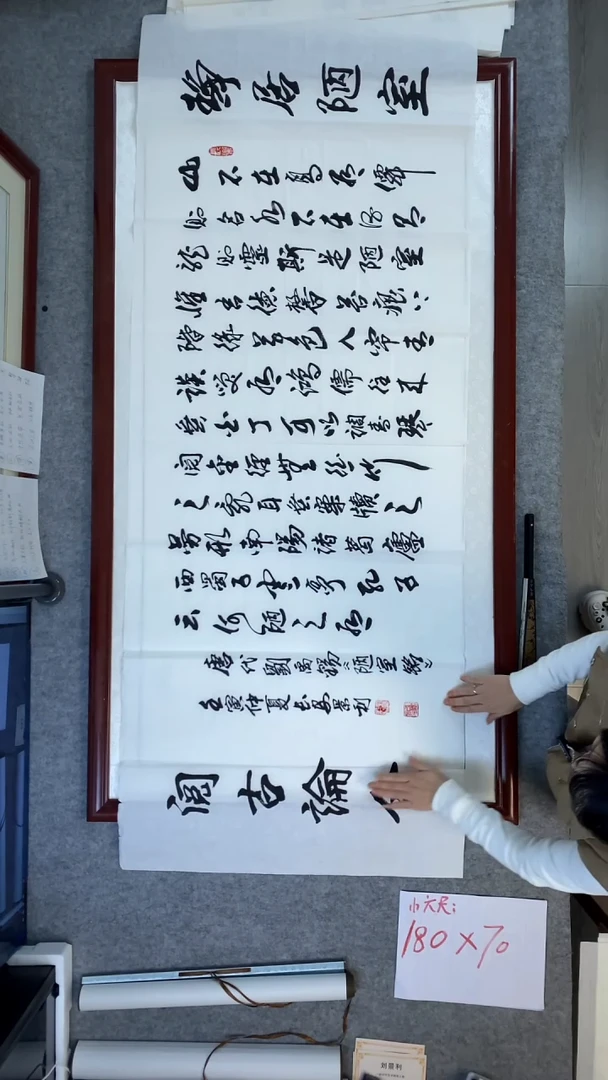 居陋室
山不在高有僊
則名水不在深有
龍則靈斯是陋室
惟吾德馨苔痕上
階綠草色入簾青
談笑有鴻儒往来
無白丁可以調素琴
閱金經無絲竹
之亂耳無案牘之
勞形南陽諸葛廬
西蜀子雲亭孔子
云何陋之有
唐代劉禹錫《陋室銘》
壬寅仲夏長安景利
閱古論
小六尺:
180×70
刘景利